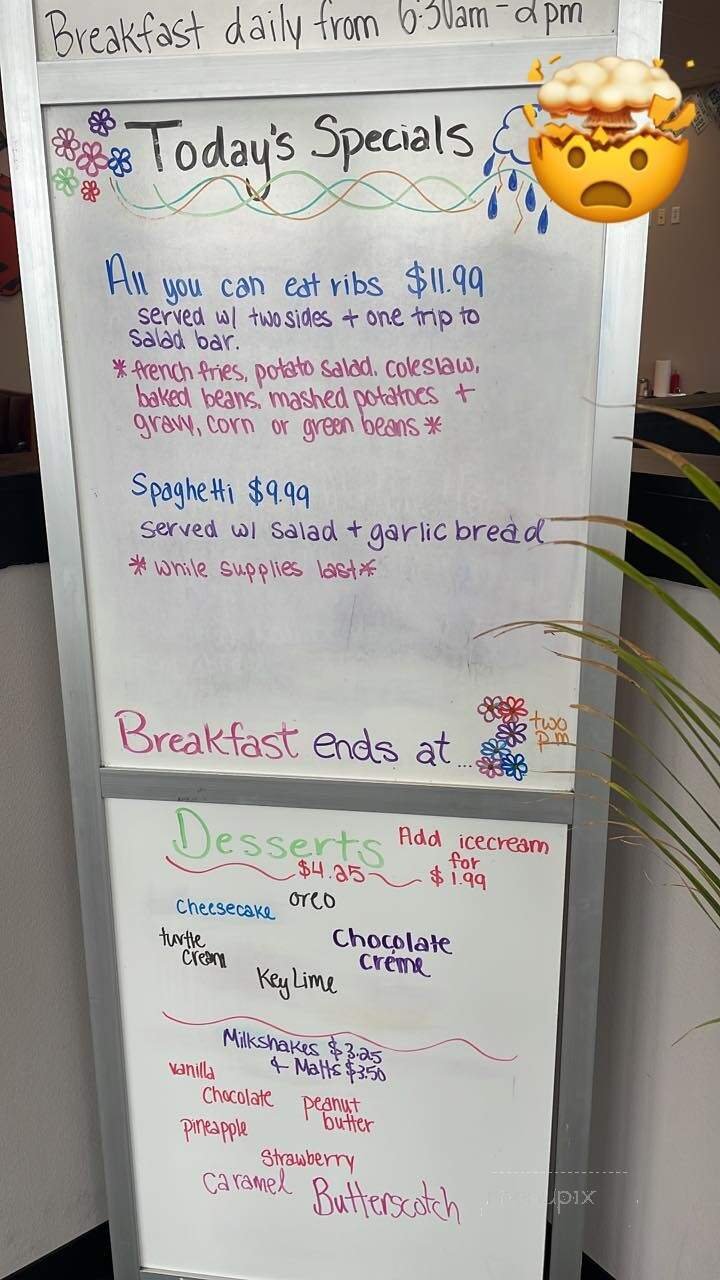 Breakfast daily from 6:30am-2pm
Today's Specials
All you can eat ribs $11.99
served w/ two sides + one trip to
salad bar.
*french fries, potato salad, coleslaw,
baked beans, mashed potatoes +
gravy, corn or green beans*
Spaghetti $9.99
served w/ salad + garlic bread
*while supplies last*
Breakfast ends at... two
pm
Desserts
$4.25
Add icecream
for
$1.99
Cheesecake
oreo
turtle
cream
Chocolate
créme
Key Lime
Milkshakes $3.25
& Malts $3.50
vanilla
Chocolate
peanut
butter
pineapple
Strawberry
Caramel
Butterscotch